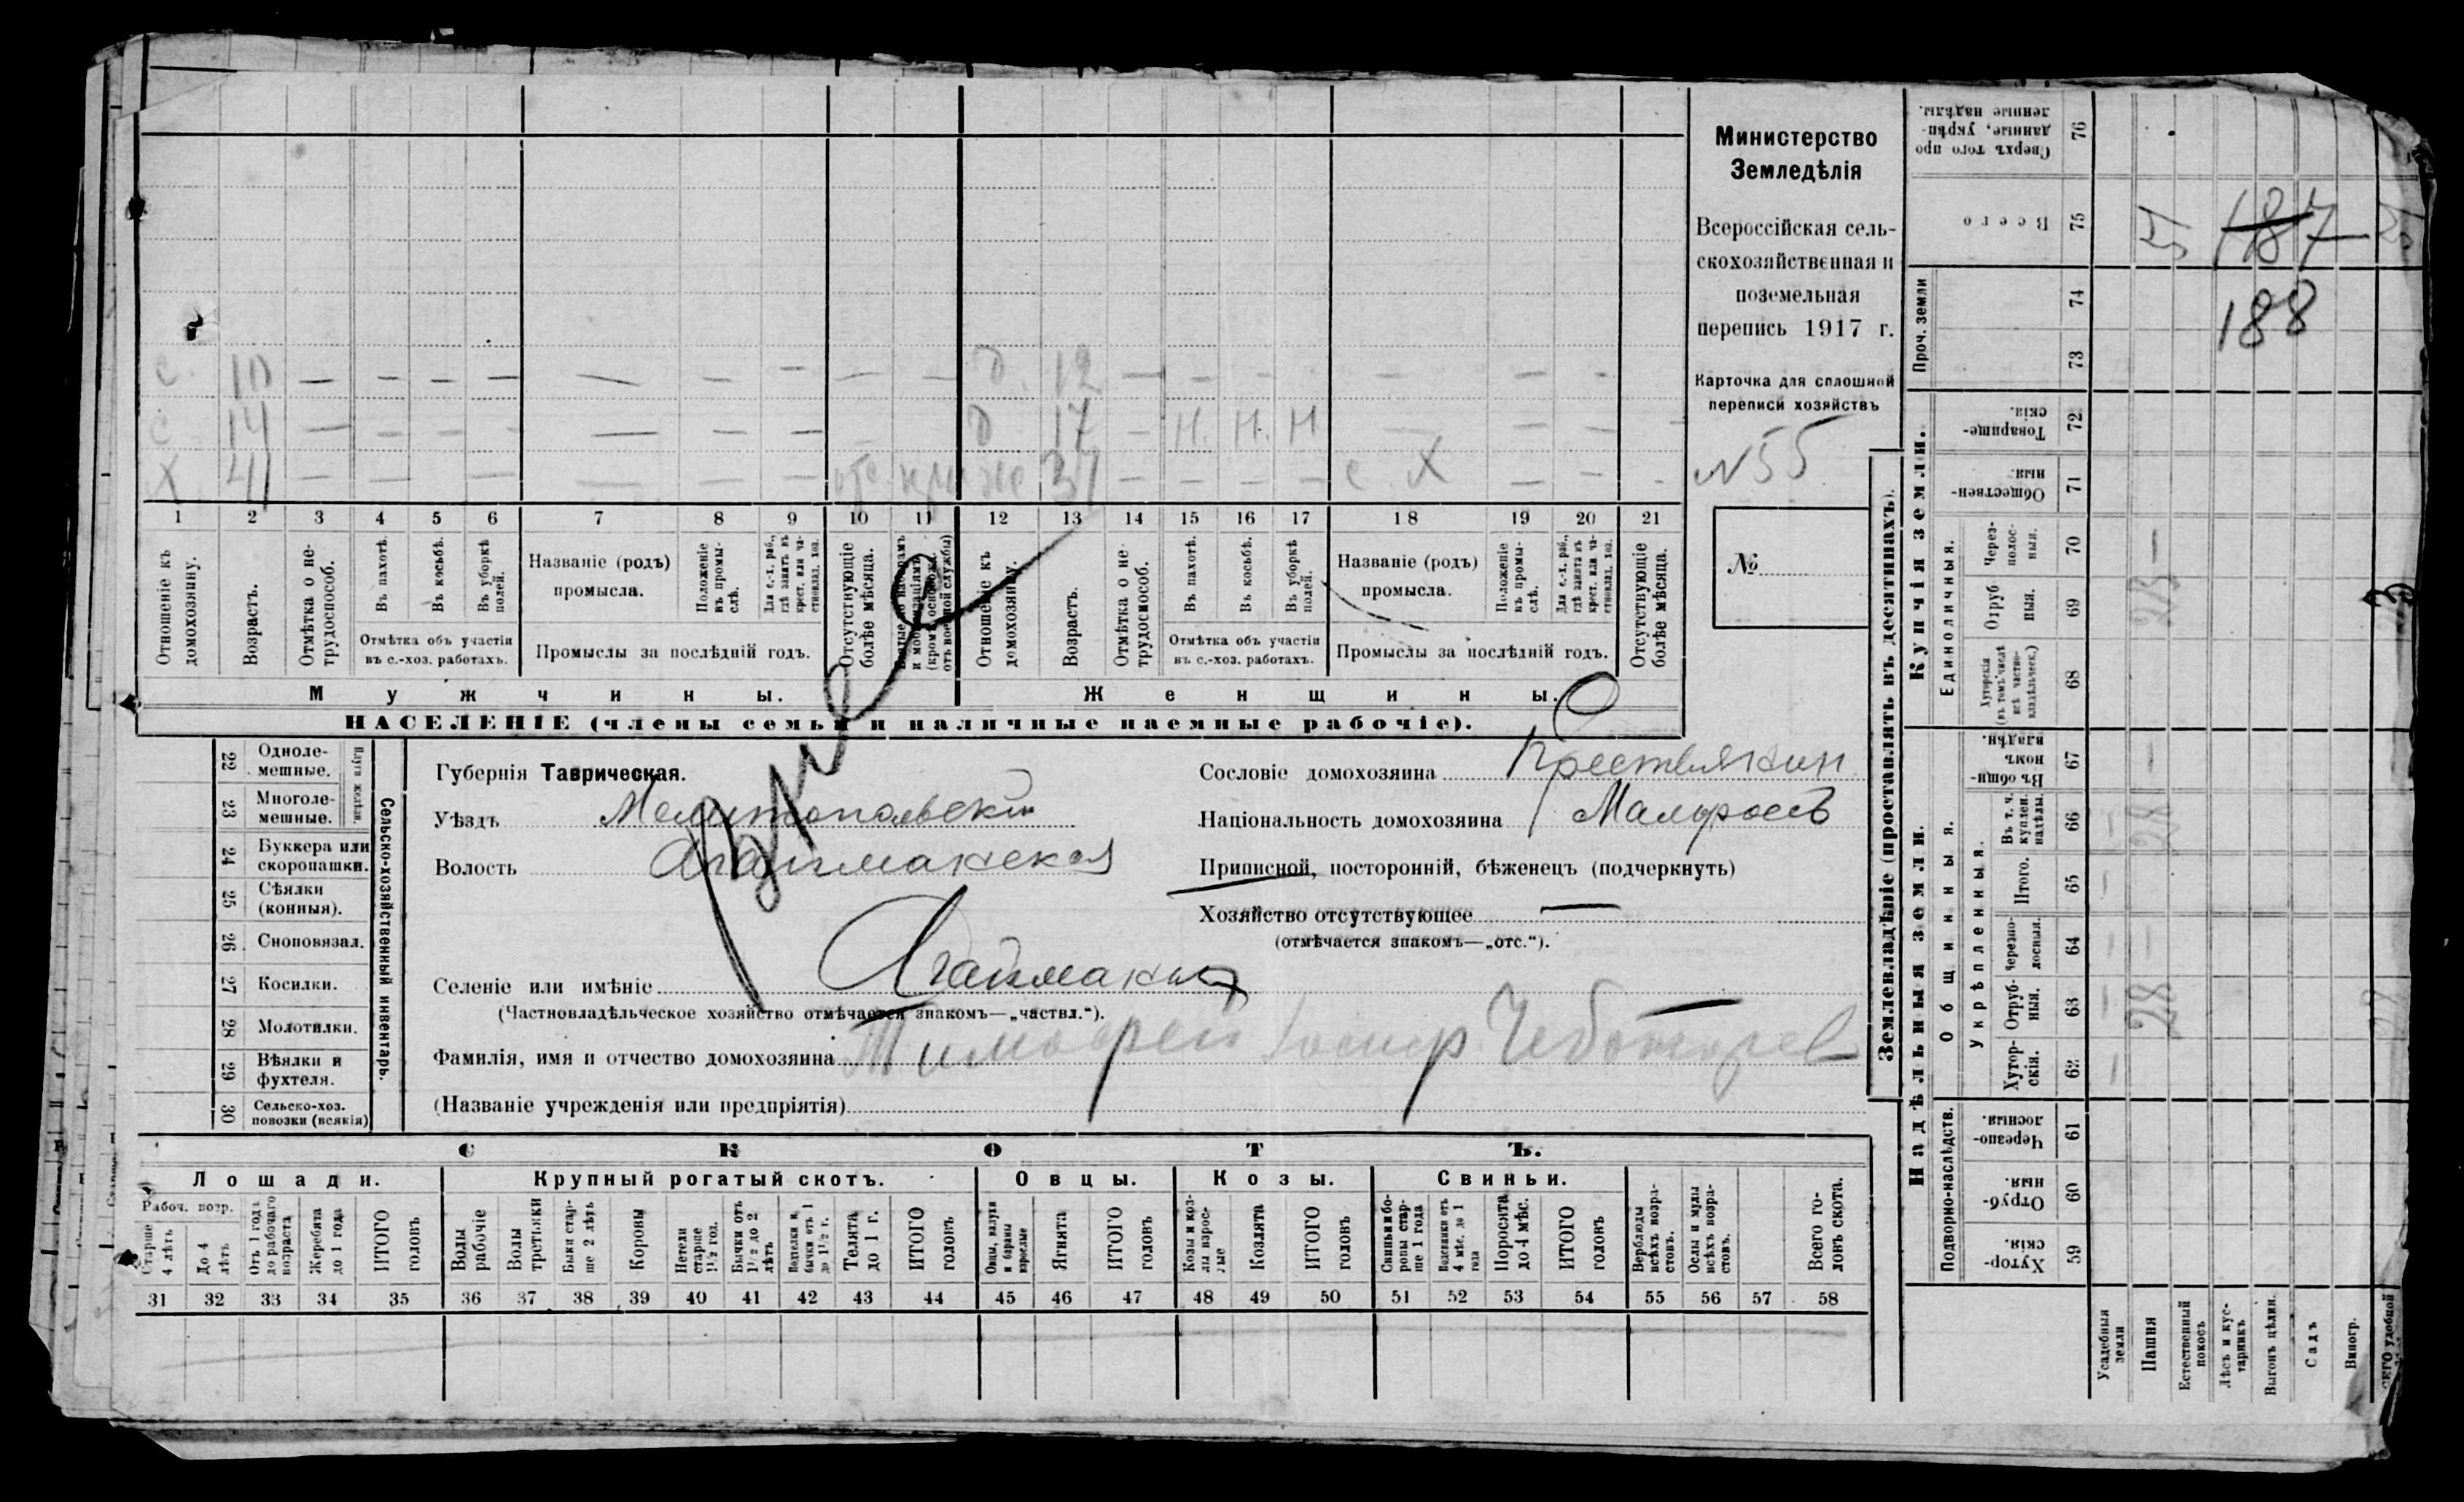 Министерство
Земледѣлія
Всероссійская сель-
скохозяйственная и
поземельная
перепись 1917 г.
Карточка для сплошной
переписи хозяйствъ
N 55
№
с. 10 — — — — — — — — — д. 12 — — — — — — —
с 14 — — — — — — — д 17 — н. н. н — — — —
х 41 — — — — — отс жена 37 — — — — с. х — — -
1 2 3 4 5 6 7 8 9 10 11 12 13 14 15 16 17 18 19 20 21
Отношеніе къ домохозяину.
Возрастъ.
Отмѣтка о не-трудоспособ.
Въ пахотѣ.
Въ косьбѣ.
Въ уборкѣ полей.
Отмѣтка объ участіи
въ с.-хоз. работахъ.
Названіе (родъ)
промысла.
Положеніе въ промы-слѣ.
Для с.-х. раб., гдѣ занятъ въ крест. или ча-стновлад. хоз.
Промыслы за послѣдній годъ.
Отсутствующіе болѣе мѣсяца.
Отношеніе къ домохозяину.
Возрастъ.
Отмѣтка о не трудоспособ.
Въ пахотѣ.
Въ косьбѣ.
Въ уборкѣ полей.
Отмѣтка объ участіи
въ с.-хоз. работахъ.
Названіе (родъ)
промысла.
Положеніе въ промы-слѣ.
Для с.-х. раб., гдѣ занята въ крест. или ча-стновлад. хоз.
Промыслы за послѣдній годъ.
Отсутствующіе болѣе мѣсяца.
Мужчины. Женщины.
НАСЕЛЕНІЕ (члены семьи и наличные наемные рабочіе).
22 Одноле-мешные.
23 Многоле-мешные.
Плуги желѣзн.
24 Буккера или скоропашки.
25 Сѣялки (конныя).
26 Сноповязал.
27 Косилки.
28 Молотилки.
29 Вѣялки и фухтеля.
30 Сельско-хоз. повозки (всякія)
Сельско-хозяйственный инвентарь.
Губернія Таврическая.
Уѣздъ Мелитопольскій
Волость Агайманская
Селеніе или имѣніе Агайманы
(Частновладѣльческое хозяйство отмѣчается знакомъ—„частвл.“).
Фамилія, имя и отчество домохозяина Тимофей Чеботарев
(Названіе учрежденія или предпріятія)
Сословіе домохозяина Крестьянин
Національность домохозяина Малоросъ
Приписной, посторонній, бѣженецъ (подчеркнуть)
Хозяйство отсутствующее —
(отмѣчается знакомъ—„отс.“).
СКОТЪ.
Лошади. Крупный рогатый скотъ. Овцы. Козы. Свиньи.
Рабоч. возр.
Старше 4 лѣтъ
До 4 лѣтъ
Отъ 1 года до рабочаго возраста
Жеребята до 1 года
ИТОГО головъ
Волы рабочіе
Волы третьяки
Быки стар-ше 2 лѣтъ
Коровы
Нетели старше 1½ год.
Бычки отъ 1½ до 2 лѣтъ
Подтелки и бычки отъ 1 до 1½ г.
Телята до 1 г.
ИТОГО головъ
Овцы, валухи и бараны взрослые
Ягнята
ИТОГО головъ
Козы и коз-лы взрос-лые
Козлята
ИТОГО головъ
Свиньи и бо-ровы стар-ше 1 года
Подсвинки отъ 4 мѣс. до 1 года
Поросята до 4 мѣс.
ИТОГО головъ
Верблюды всѣхъ возра-стовъ.
Ослы и мулы всѣхъ возра-стовъ.
Всего го-ловъ скота.
31 32 33 34 35 36 37 38 39 40 41 42 43 44 45 46 47 48 49 50 51 52 53 54 55 56 57 58
Землевладѣніе (проставлять въ десятинахъ).
Надѣльныя земли. Купчія земли. Проч. земли
Подворно-наслѣдств.
Общинныя.
Укрѣпленныя.
Единоличныя.
Хутор-скія. 59
Отруб-ныя. 60
Черезпо-лосныя. 61
Хутор-скія. 62
Отруб-ныя. 63
Черезпо-лосныя. 64
Итого. 65
Въ т. ч. куплен. надѣлы. 66
Въ общин-номъ владѣн. 67
Хуторскія (въ томъ числѣ всѣ частно-владѣльческ.) 68
Отруб ныя. 69
Через-полос-ныя. 70
Обществен-ныя. 71
Товарище-скія. 72
73
74
Всего 75
Сверхъ того про данные, укрѣп-ленные надѣлы. 76
Усадебныя земли
Пашня
Естественный покосъ
Лѣсъ и кус-тарникъ
Выгонъ цѣлин.
Садъ
Виногр.
28
28
23
51
187
188